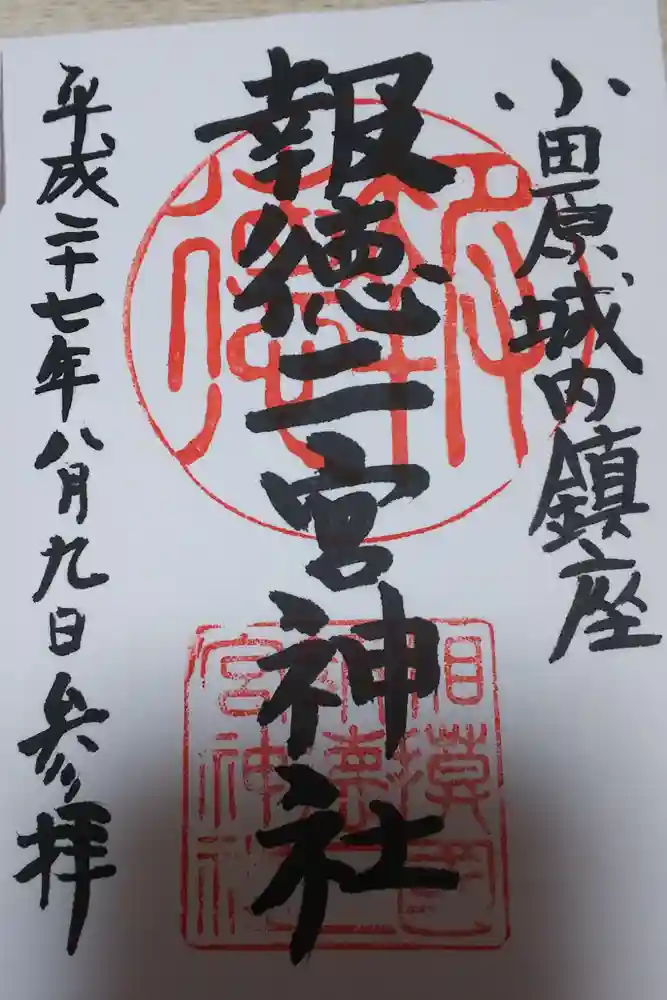 小田原城内鎮座
報徳二宮神社
平成二十七年八月九日参拝
相模国
報徳二
宮神社